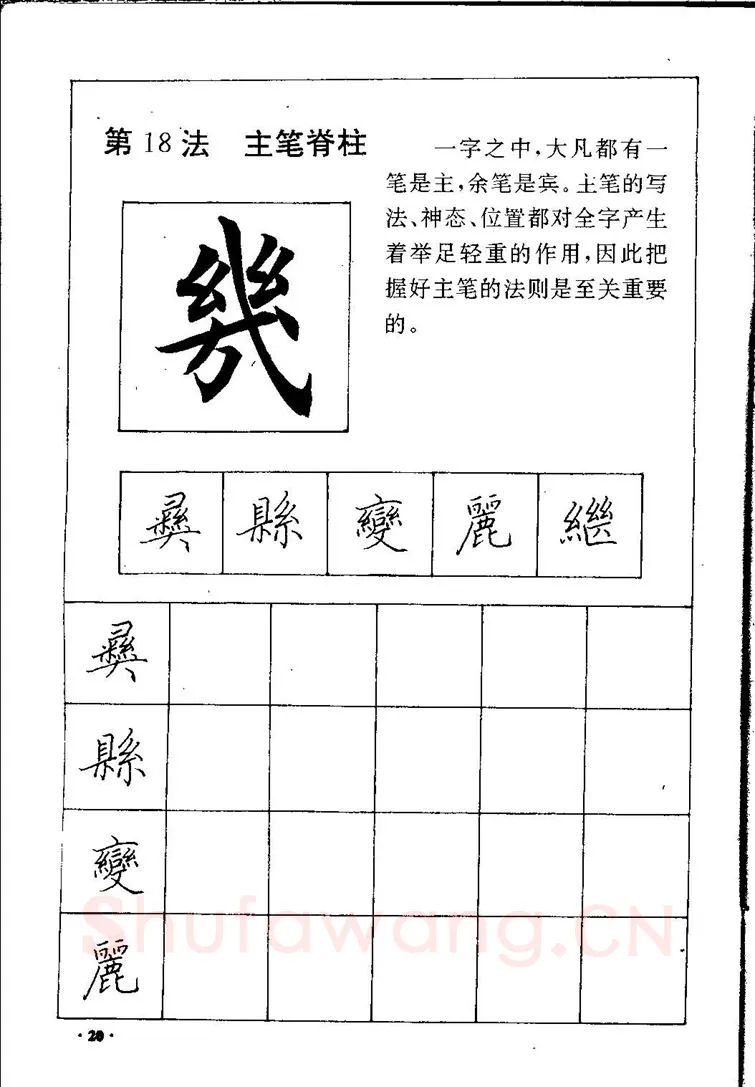 第18法 主笔脊柱
一字之中,大凡都有一
笔是主,余笔是宾。主笔的写
法、神态、位置都对全字产生
着举足轻重的作用,因此把
握好主笔的法则是至关重要
的。
幾
彝 縣 變 麗 繼
彝
縣
變
麗
Shufawang.CN
·20·